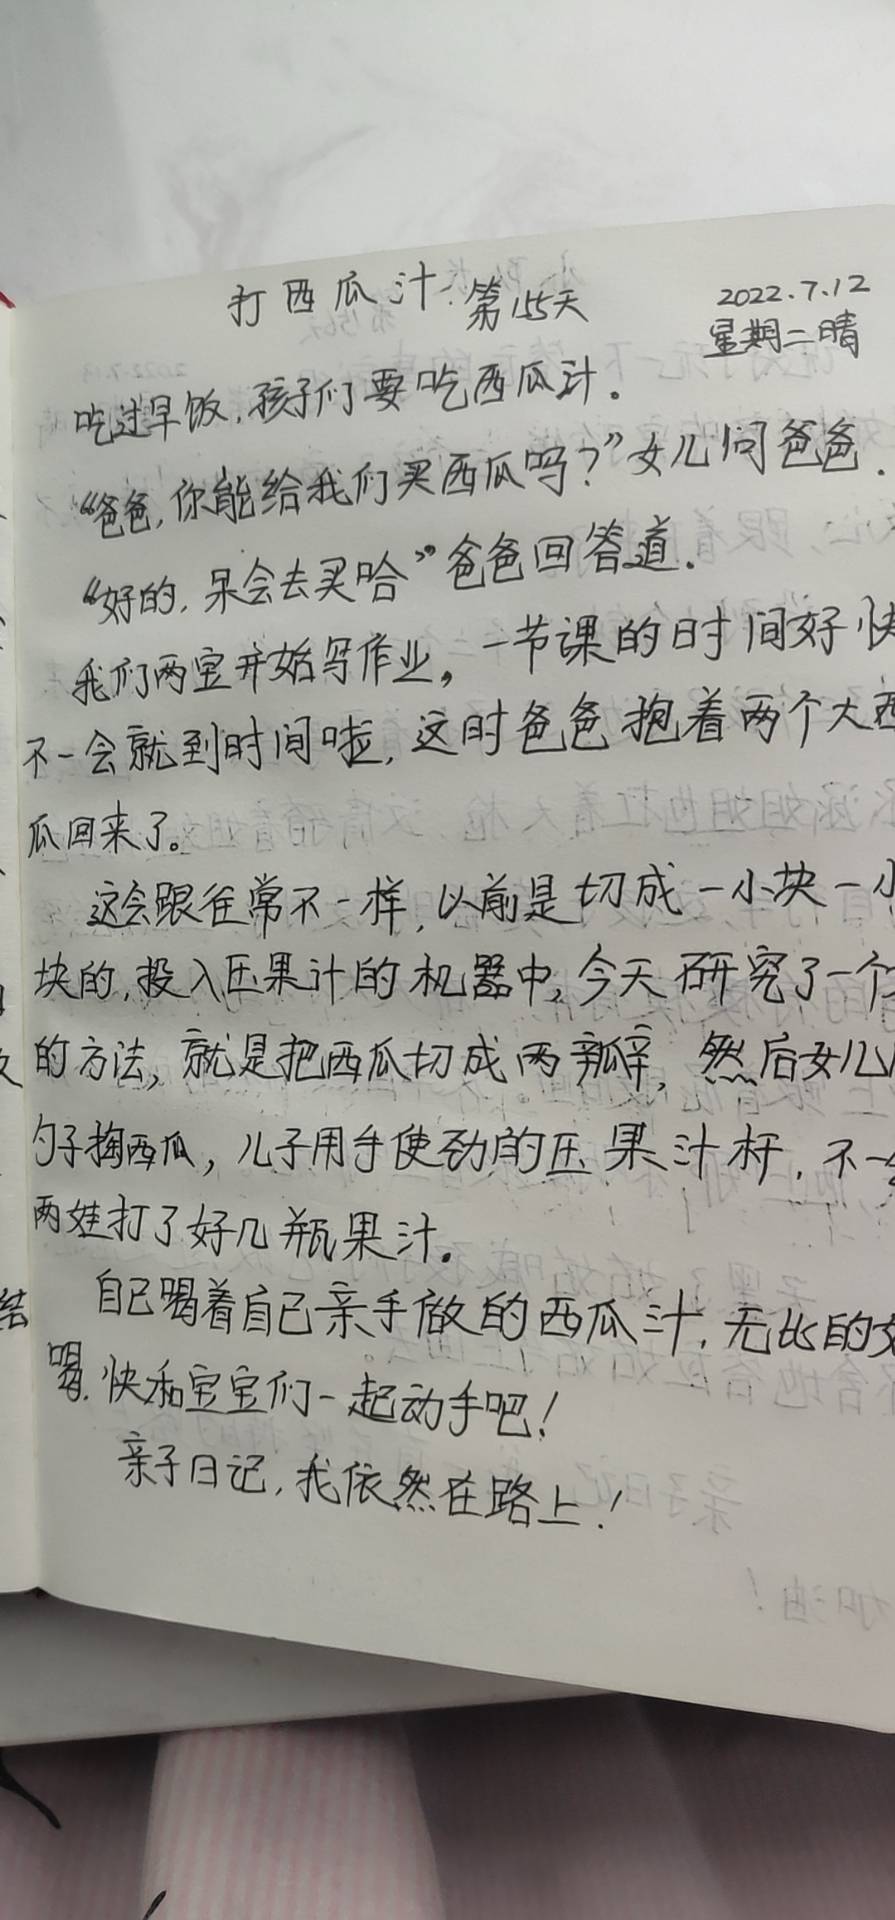 打西瓜汁. 第155天
2022.7.12
星期二晴
吃过早饭,孩子们要吃西瓜汁。
“爸爸,你能给我们买西瓜吗?”女儿问爸爸.
“好的,呆会去买哈”爸爸回答道.
我们两宝开始写作业,一节课的时间好快
不一会就到时间啦,这时爸爸抱着两个大西
瓜回来了。
这会跟往常不一样,以前是切成一小块一小
块的,投入压果汁的机器中,今天研究了一个
的方法,就是把西瓜切成两瓣,然后女儿
勺子掏西瓜,儿子用手使劲的压果汁杆,不一
两娃打了好几瓶果汁.
自己喝着自己亲手做的西瓜汁,无比的
喝.快和宝宝们一起动手吧!
亲子日记,我依然在路上!
结